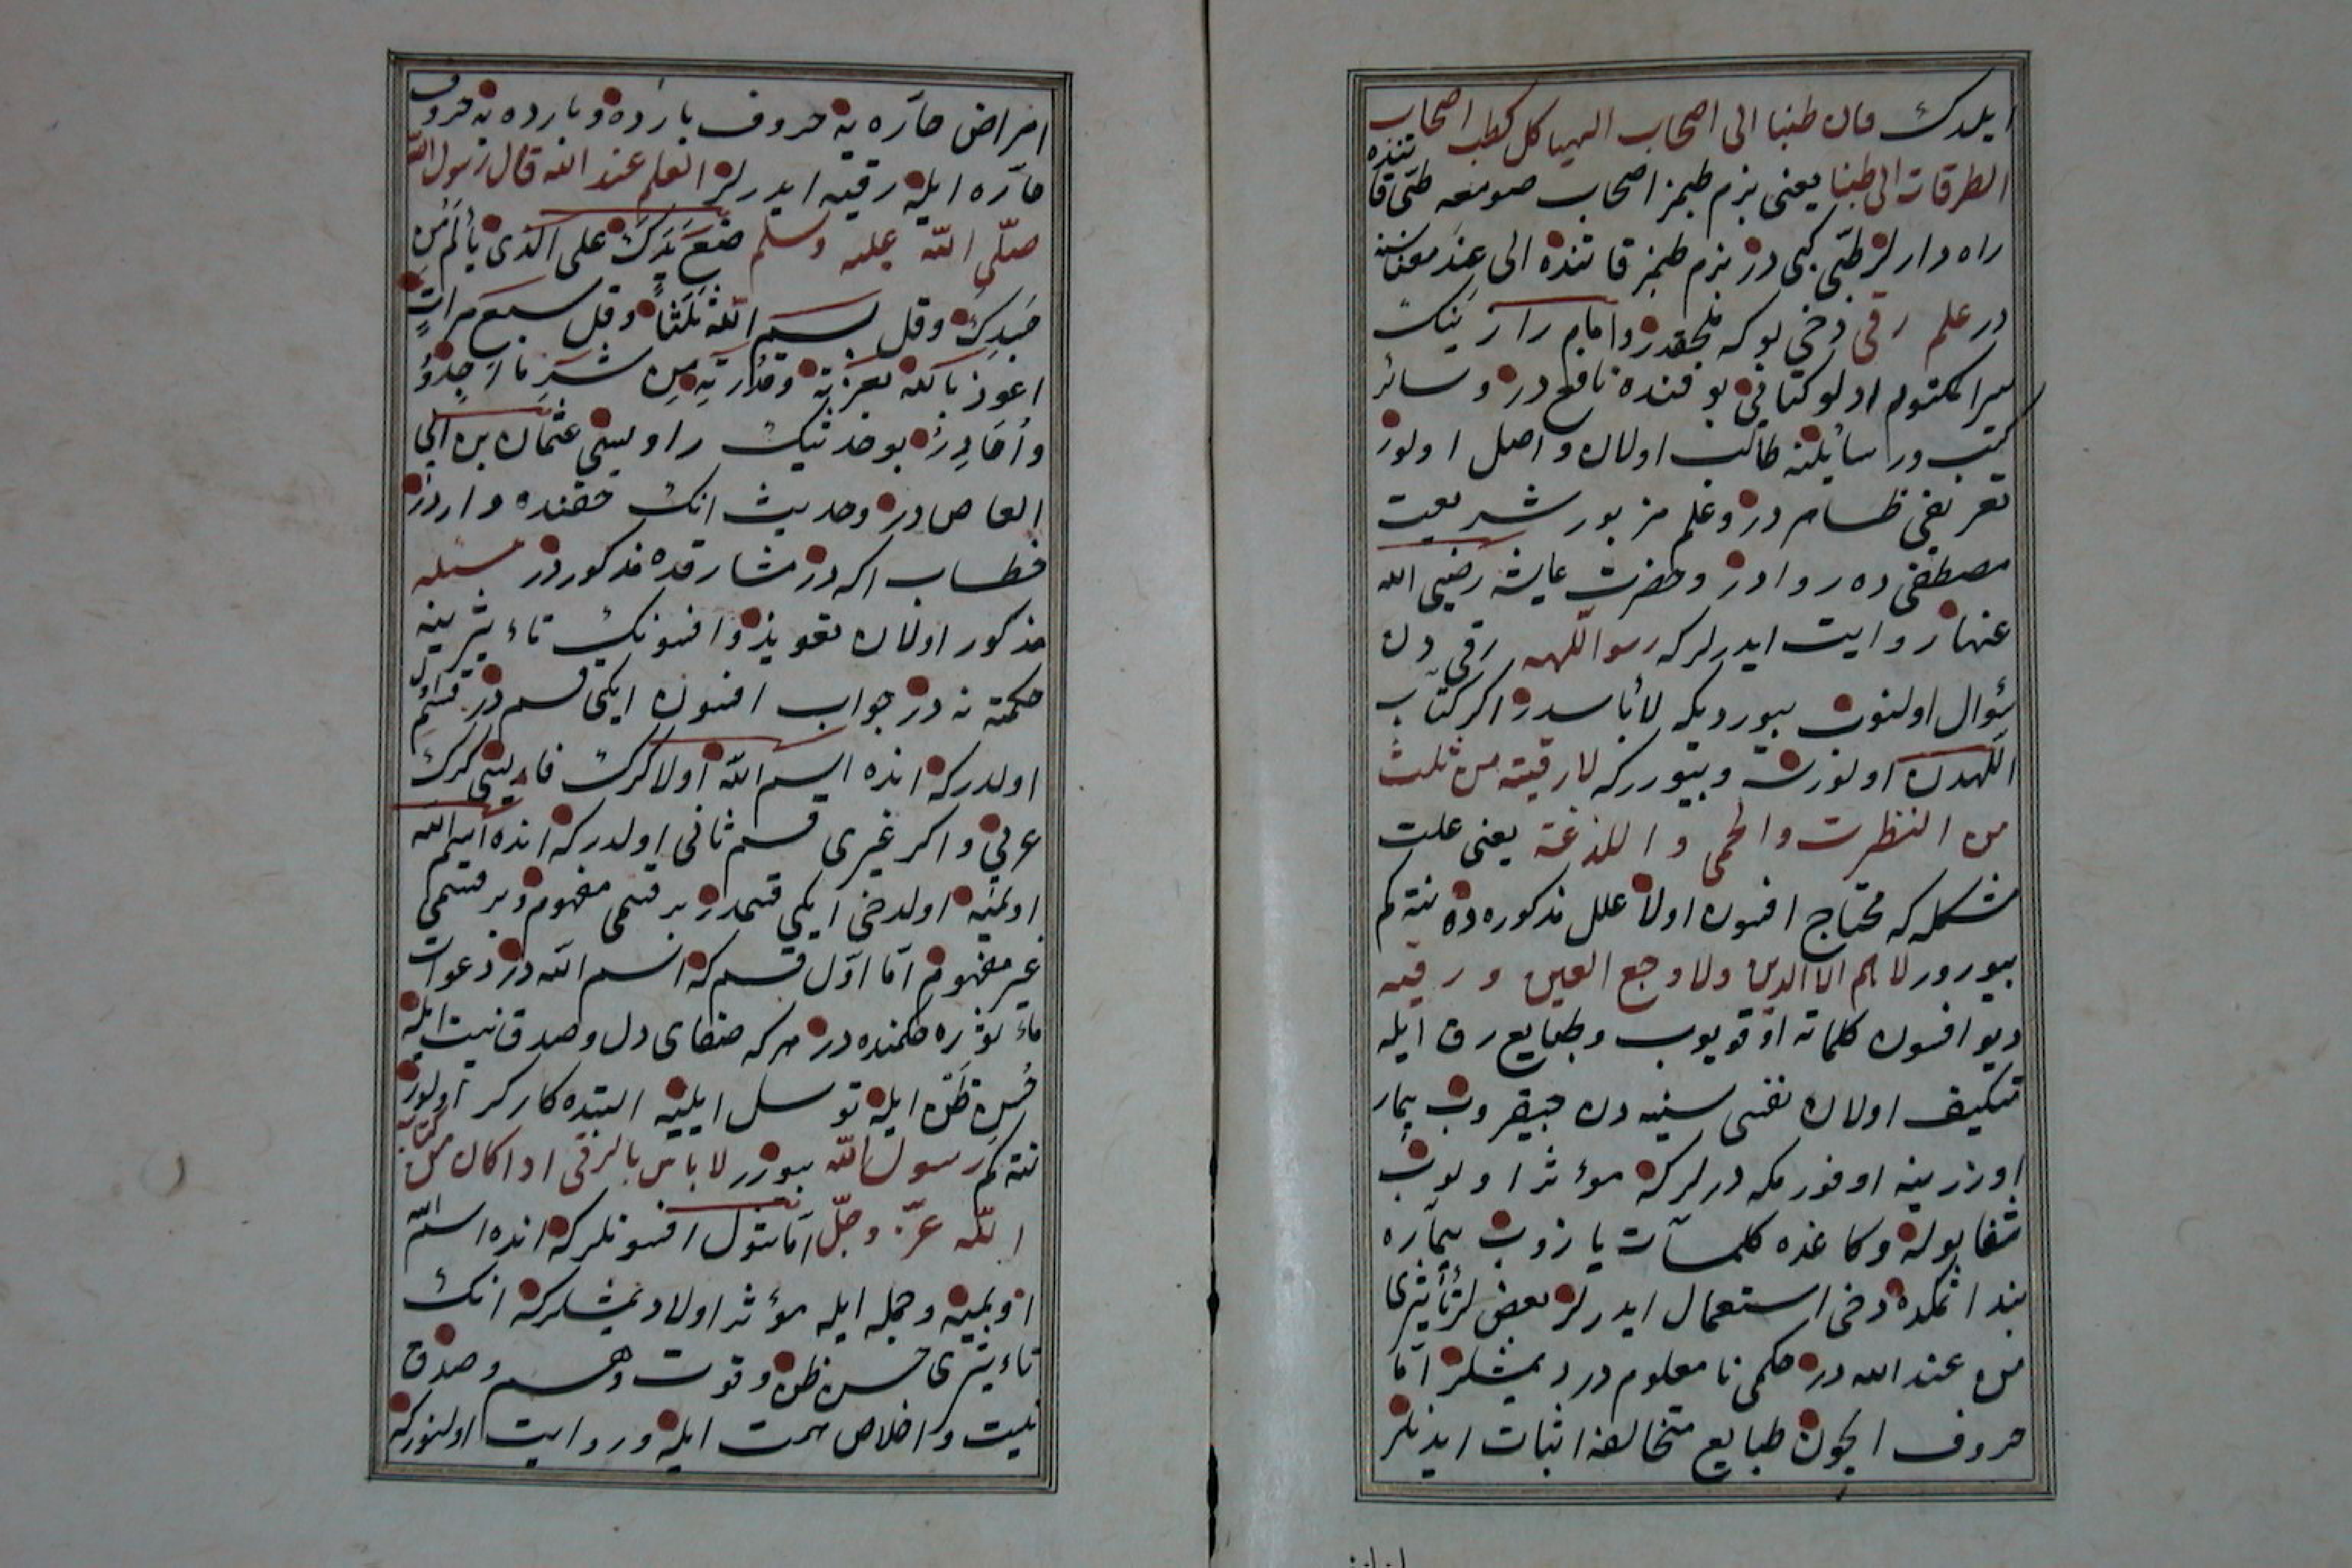 ايلدك فان طبنا الى اصحاب الهياكل كطب اصحاب
الطرقات الى طبنا يعنى بزم طبمز اصحاب صومعه طبى قاتنده
راه دارلر طبى كبى در بزم طبمز قاتنده الى عند
در علم رقى دخى بوكه ملحقدر وامام رازينك
سر المكتوم ادلو كتابى بو فنده نافع در وسائر
كتب ورسائلنه طالب اولان واصل اولور
تعريفى ظاهر در وعلم مزبور شريعت
مصطفى ده روادر وحضرت عايشه رضى الله
عنها روايت ايدرلركه رسول اللهه رقى دن
سؤال اولنوب بيورديكه لا بأسدر اكر كتاب
اللهدن اولنورسه وبيورركه لا رقية من ثلث
من النظرت والحمى واللذغة يعنى علت
مشكله كه محتاج افسون اولا علل مذكوره ده نته كم
بيورور لا هم الا الدين ولا وجع العين ورقيه
ديو افسون كلماتن اوقويوب وطبايع رق ايله
تكيف اولان نفسى سينه دن چيقروب بيمار
اوزرينه اوفورمكه درلركه مؤثر اولوب
شفا بوله وكاغده كلمات يازوب بيماره
بند اتمكده دخى استعمال ايدرلر بعضلر تأثيرى
من عند الله در حكمى نا معلوم در ديمشلر اما
حروف ايچون طبايع متخالفه اثبات ايدنلر
امراض حاره يه حروف بارده وبارده يه حروف
حاره ايله رقيه ايدرلر العلم عند الله قال رسول الله
صلى الله عليه وسلم ضع يدك على الذى يألم من
جسدك وقل بسم الله ثلثا وقل سبع مرات
اعوذ بالله بعزته وقدرته من شر ما اجد و
واحاذر بو حديثك راويسى عثمان بن ابى
العاص در وحديث انك حقنده وارددر
خطاب اكه در مشارقده مذكوردر مسئله
مذكور اولان تعويذ وافسونك تاءثيرينه
حكمت نه در جواب افسون ايكى قسم در قسم اول
اولدركه انده اسم الله اولا كرك فارسى كرك
عربى واكر غيرى قسم ثانى اولدركه انده اسم الله
اولميه اولدخى ايكى قسمدر بر قسمى مفهوم وبر قسمى
غير مفهوم اما اول قسم كه اسم الله در دعوات
مأثوره حكمنده در هركه صفاى دل وصدق نيت ايله
حسن ظن ايله توسل ايليه البته كاركر اولور
نته كم رسول الله بيورر لا باس بالرقى اذا كان من كتاب
الله عز وجل اما شول افسونلركه انده اسم الله
اولميه وجمله ايله مؤثر اولا ديمشلركه انك
تاءثيرى حسن ظن وقوت وهم وصدق
نيت واخلاص همت ايله در روايت اولنوركه